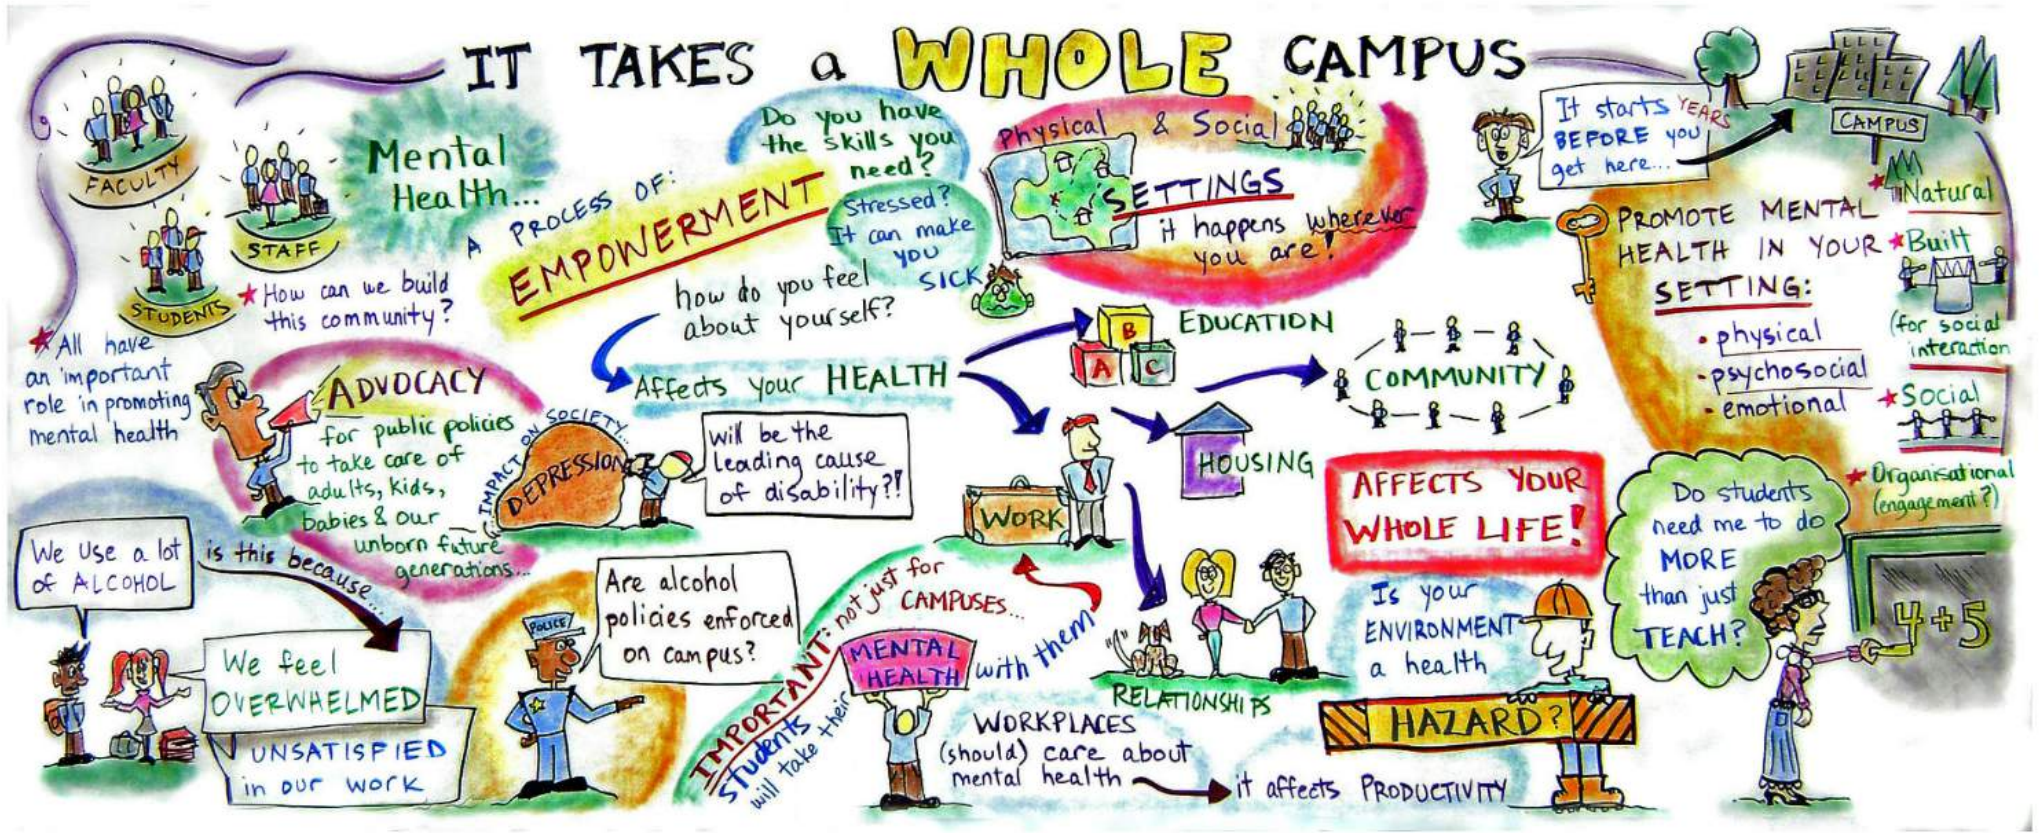 IT TAKES a WHOLE CAMPUS
FACULTY
STAFF
STUDENTS
★ How can we build
this community?
★ All have
an important
role in promoting
mental health
Mental
Health...
A PROCESS OF:
EMPOWERMENT
Do you have
the skills you
need?
Stressed?
It can make
you
SICK
how do you feel
about yourself?
Affects your HEALTH
Physical & Social
SETTINGS
it happens wherever
you are!
It starts YEARS
BEFORE you
get here...
CAMPUS
PROMOTE MENTAL
HEALTH IN YOUR
SETTING:
• physical
• psychosocial
• emotional
★ Natural
★ Built
(for social
interaction
★ Social
★ Organisational
(engagement?)
ADVOCACY
for public policies
to take care of
adults, kids,
babies & our
unborn future
generations...
...IMPACT ON SOCIETY...
DEPRESSION
will be the
leading cause
of disability?!
B
A C
EDUCATION
COMMUNITY
HOUSING
WORK
RELATIONSHIPS
AFFECTS YOUR
WHOLE LIFE!
We use a lot
of ALCOHOL
is this because...
We feel
OVERWHELMED
UNSATISFIED
in our work
POLICE
Are alcohol
policies enforced
on campus?
IMPORTANT: not just for
CAMPUSES...
students
will take their
MENTAL
HEALTH
with them
WORKPLACES
(should) care about
mental health
it affects PRODUCTIVITY
Is your
ENVIRONMENT
a health
HAZARD?
Do students
need me to do
MORE
than just
TEACH?
4+5